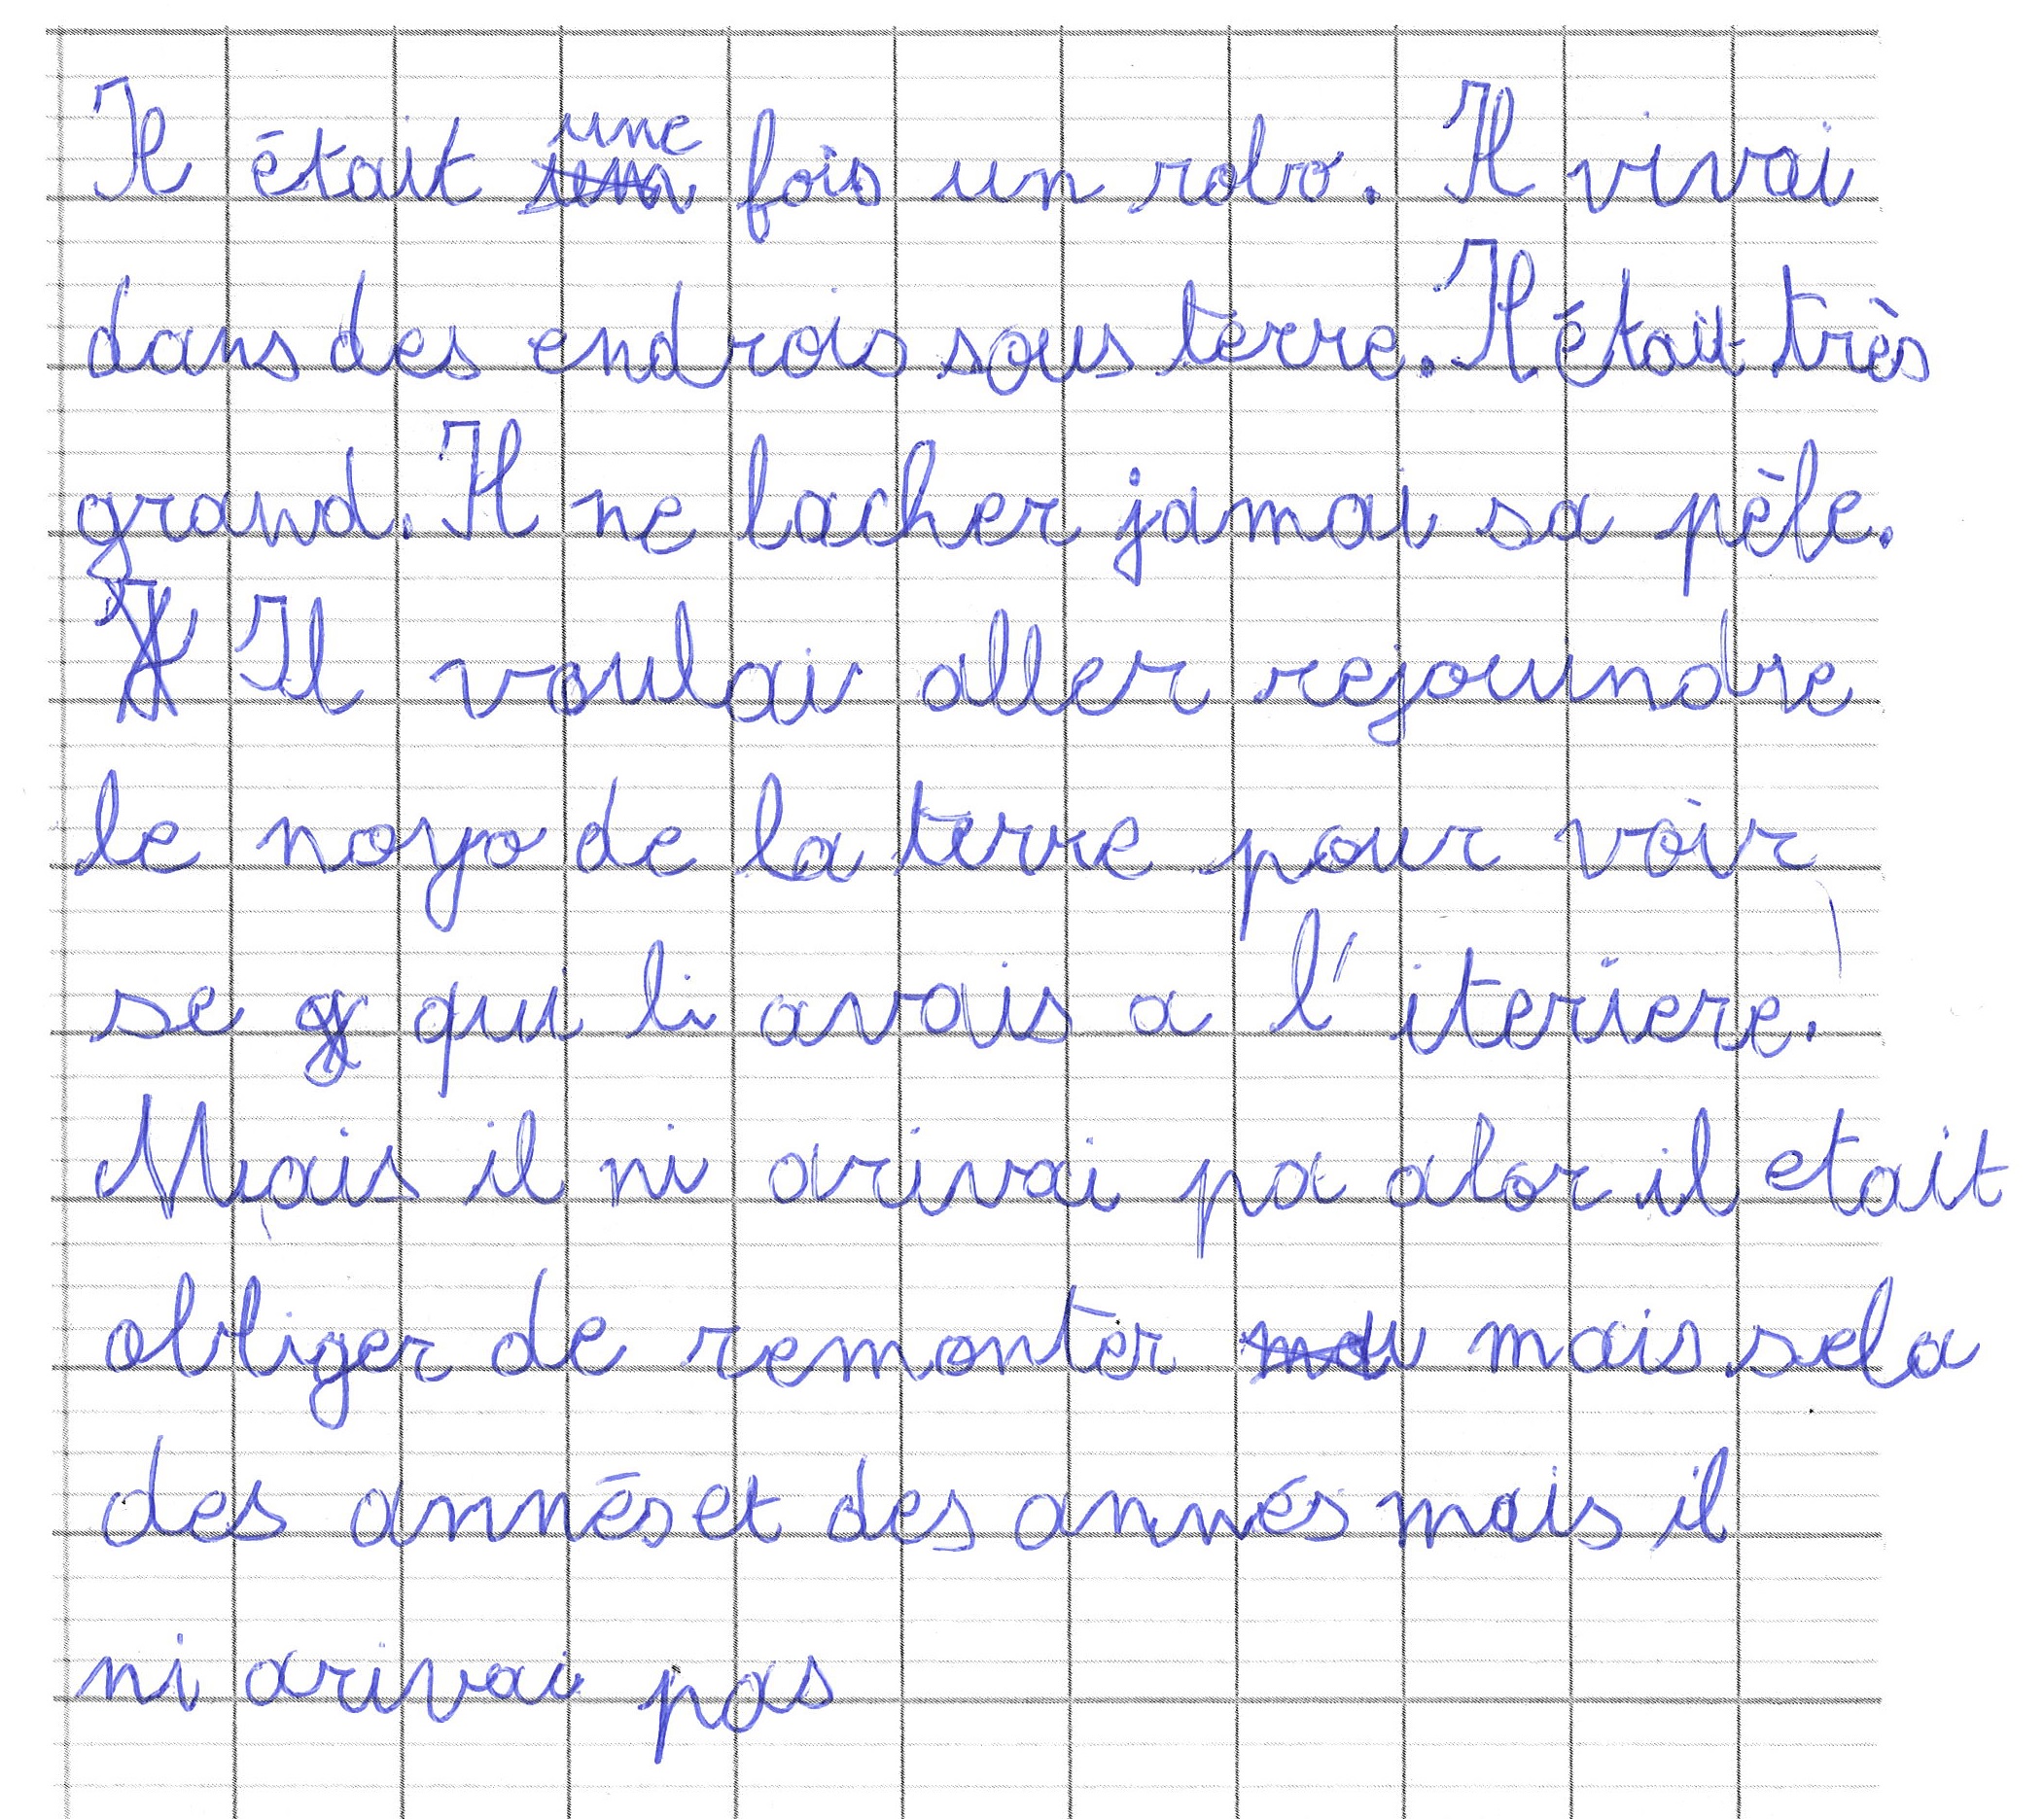 Il était une fois un robo. Il vivai
dans des endrois sous terre. Il était très
grand. Il ne lacher jamai sa pèle.
Il voulai aller rejoindre
le noyo de la terre pour voir
se qui li avais a l'iteriere.
Mais il ni arivai pa alor il etait
obliger de remonter mais sela
des annés et des annés mais il
ni arivai pas